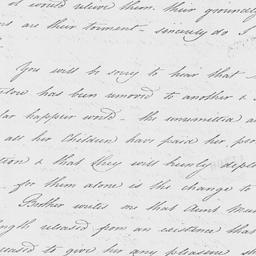 it would relieve them. their groundl
are their torment - sincerely do I
You will be sorry to hear that
has been removed to another &
far happier world - the unremitted
all her Children have paid her, per
& that they will keenly depl
- for them alone is the change to
Brother writes me that Aunt
released from an existence that
ceased to give her any pleasure